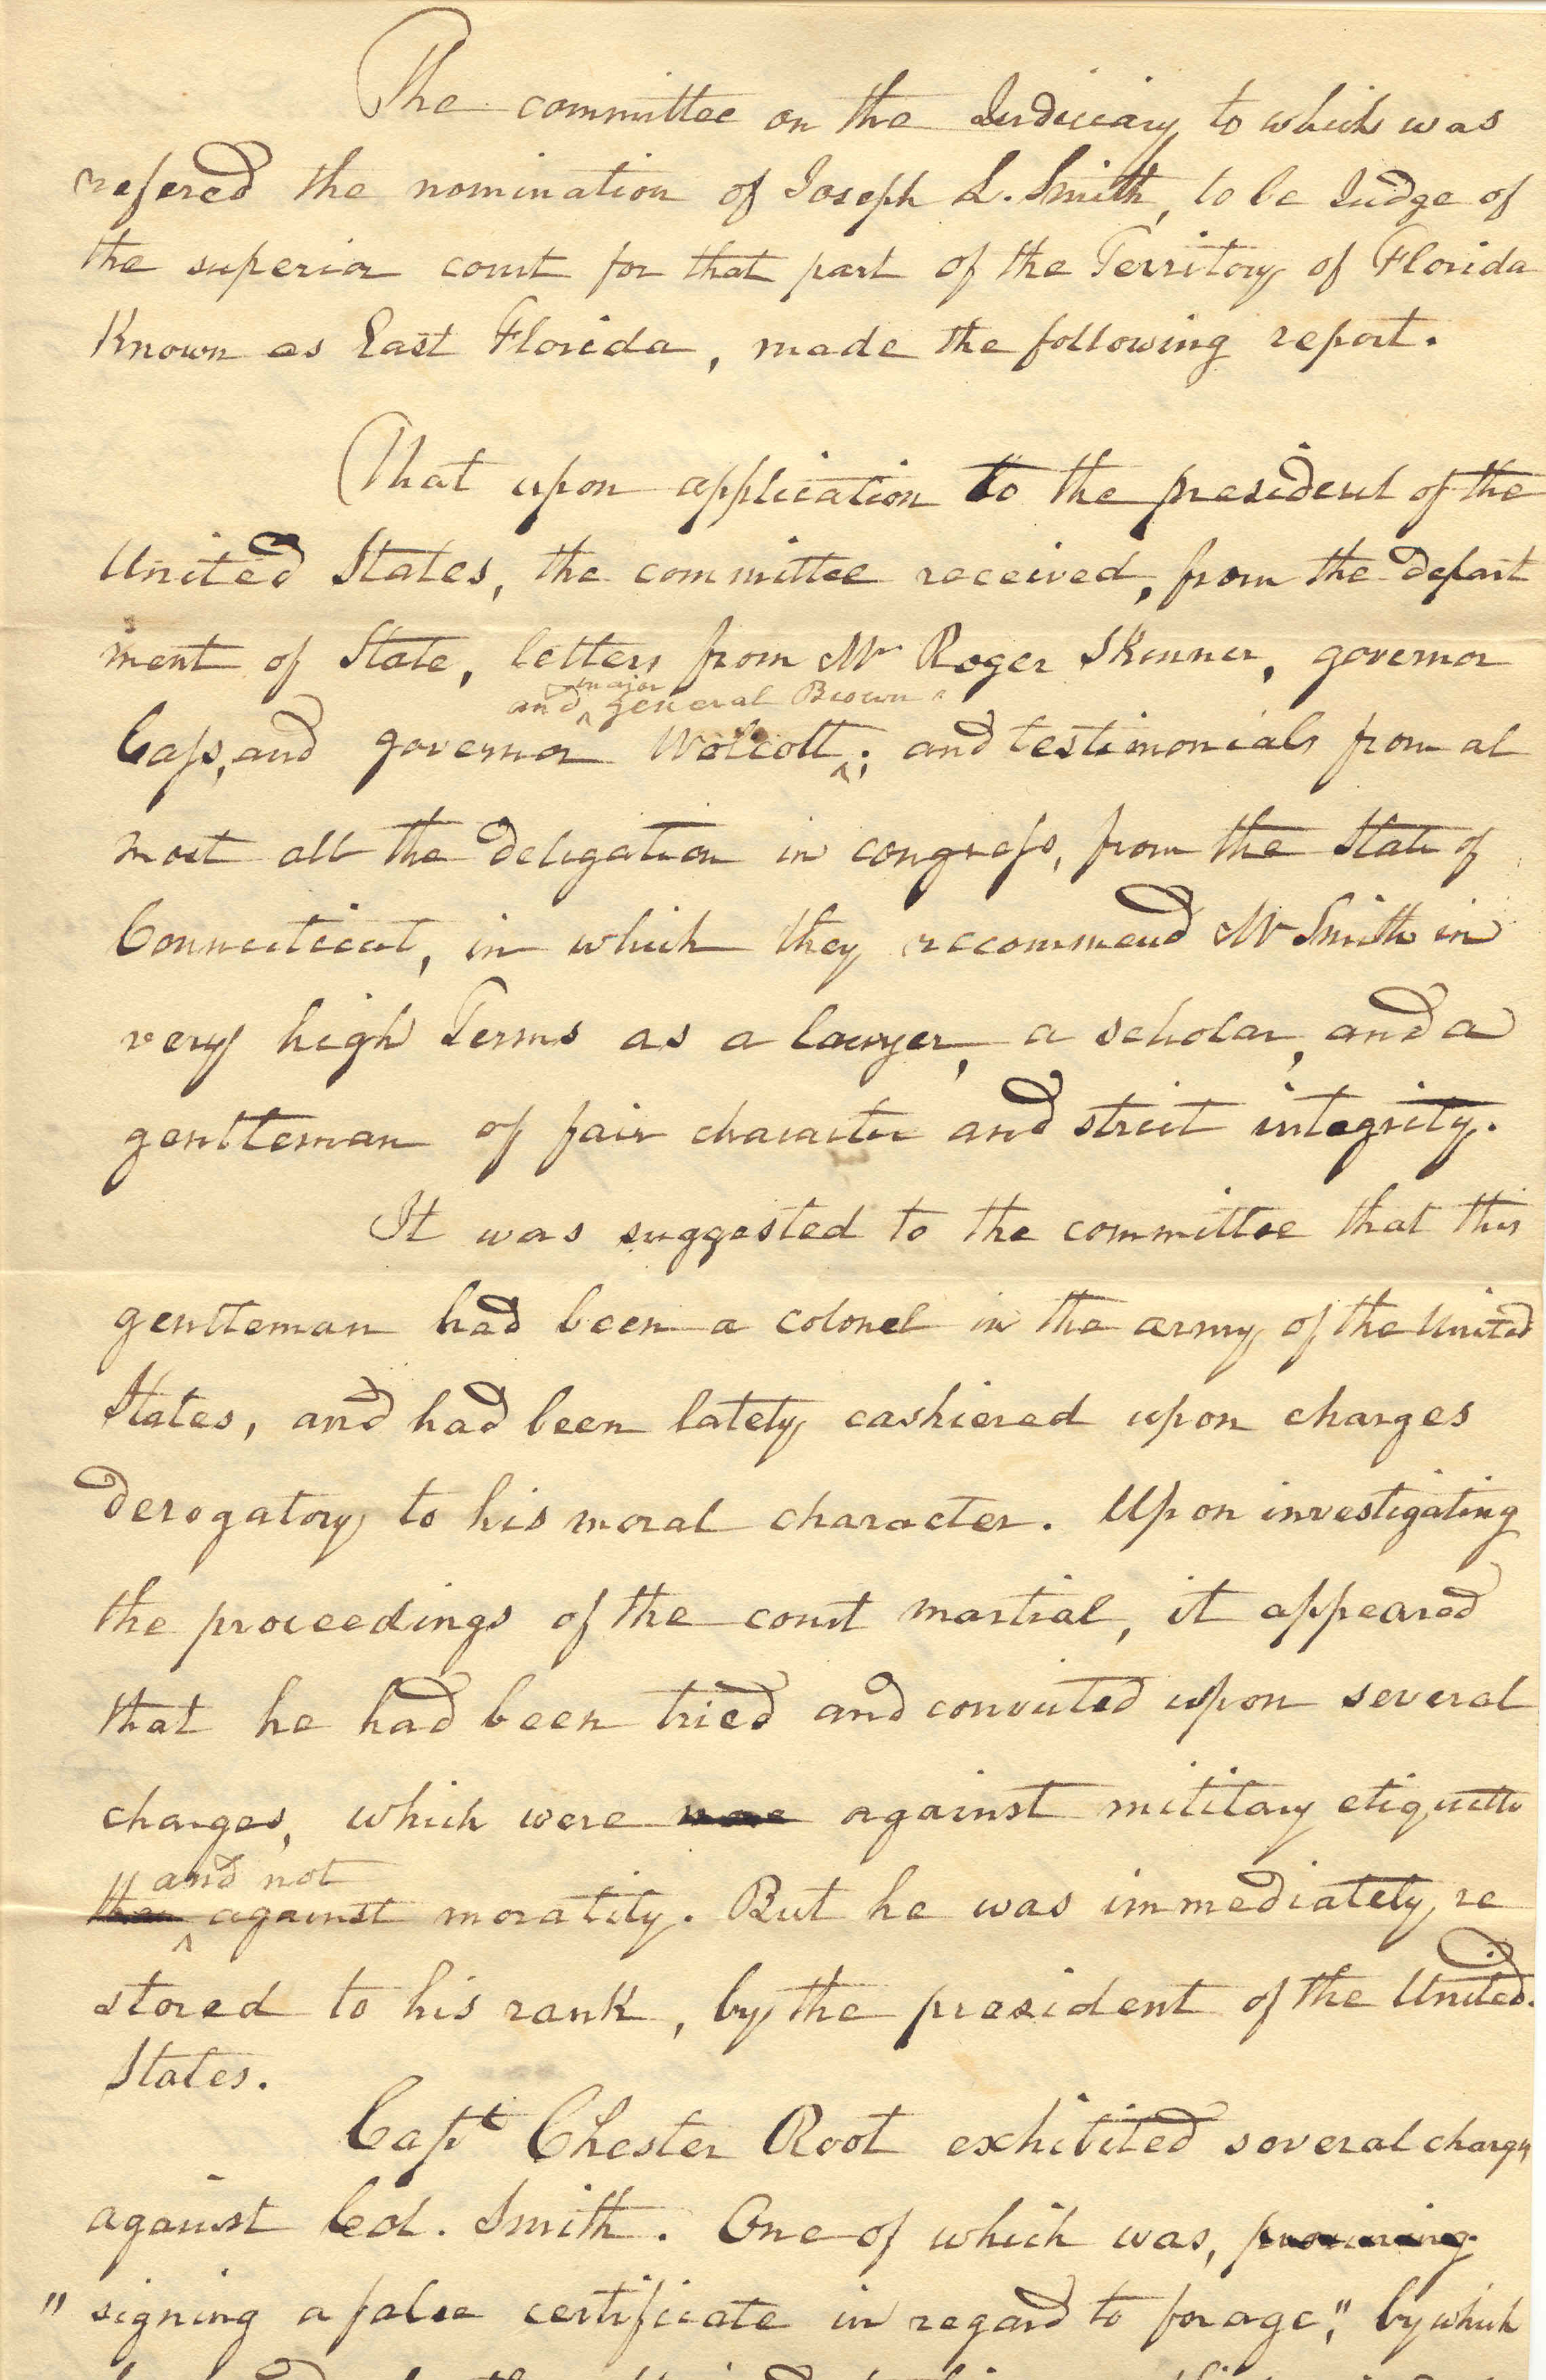 The committee on the Judiciary to which was
refered the nomination of Joseph L. Smith, to be Judge of
the superior court for that part of the Territory of Florida
Known as East Florida, made the following report.
That upon application to the president of the
United States, the committee received, from the depart
ment of State, letters from Mr Roger Skinner, governor
and major general Brown
Cass, and governor Wolcott; and testimonials from al
most all the delegation in congress, from the State of
Connecticut, in which they recommend Mr Smith in
very high Terms as a lawyer, a scholar, and a
gentleman of fair character and strict integrity.
It was suggested to the committee that this
gentleman had been a colonel in the army of the United
States, and had been lately cashiered upon charges
derogatory to his moral character. Upon investigating
the proceedings of the court martial, it appeared
that he had been tried and convicted upon several
charges, which were more against military etiquette
and not
than against morality. But he was immediately re
stored to his rank, by the president of the United
States.
Capt Chester Root exhibited several charges
against Col. Smith. One of which was, procuring
"signing a false certificate in regard to forage", by which